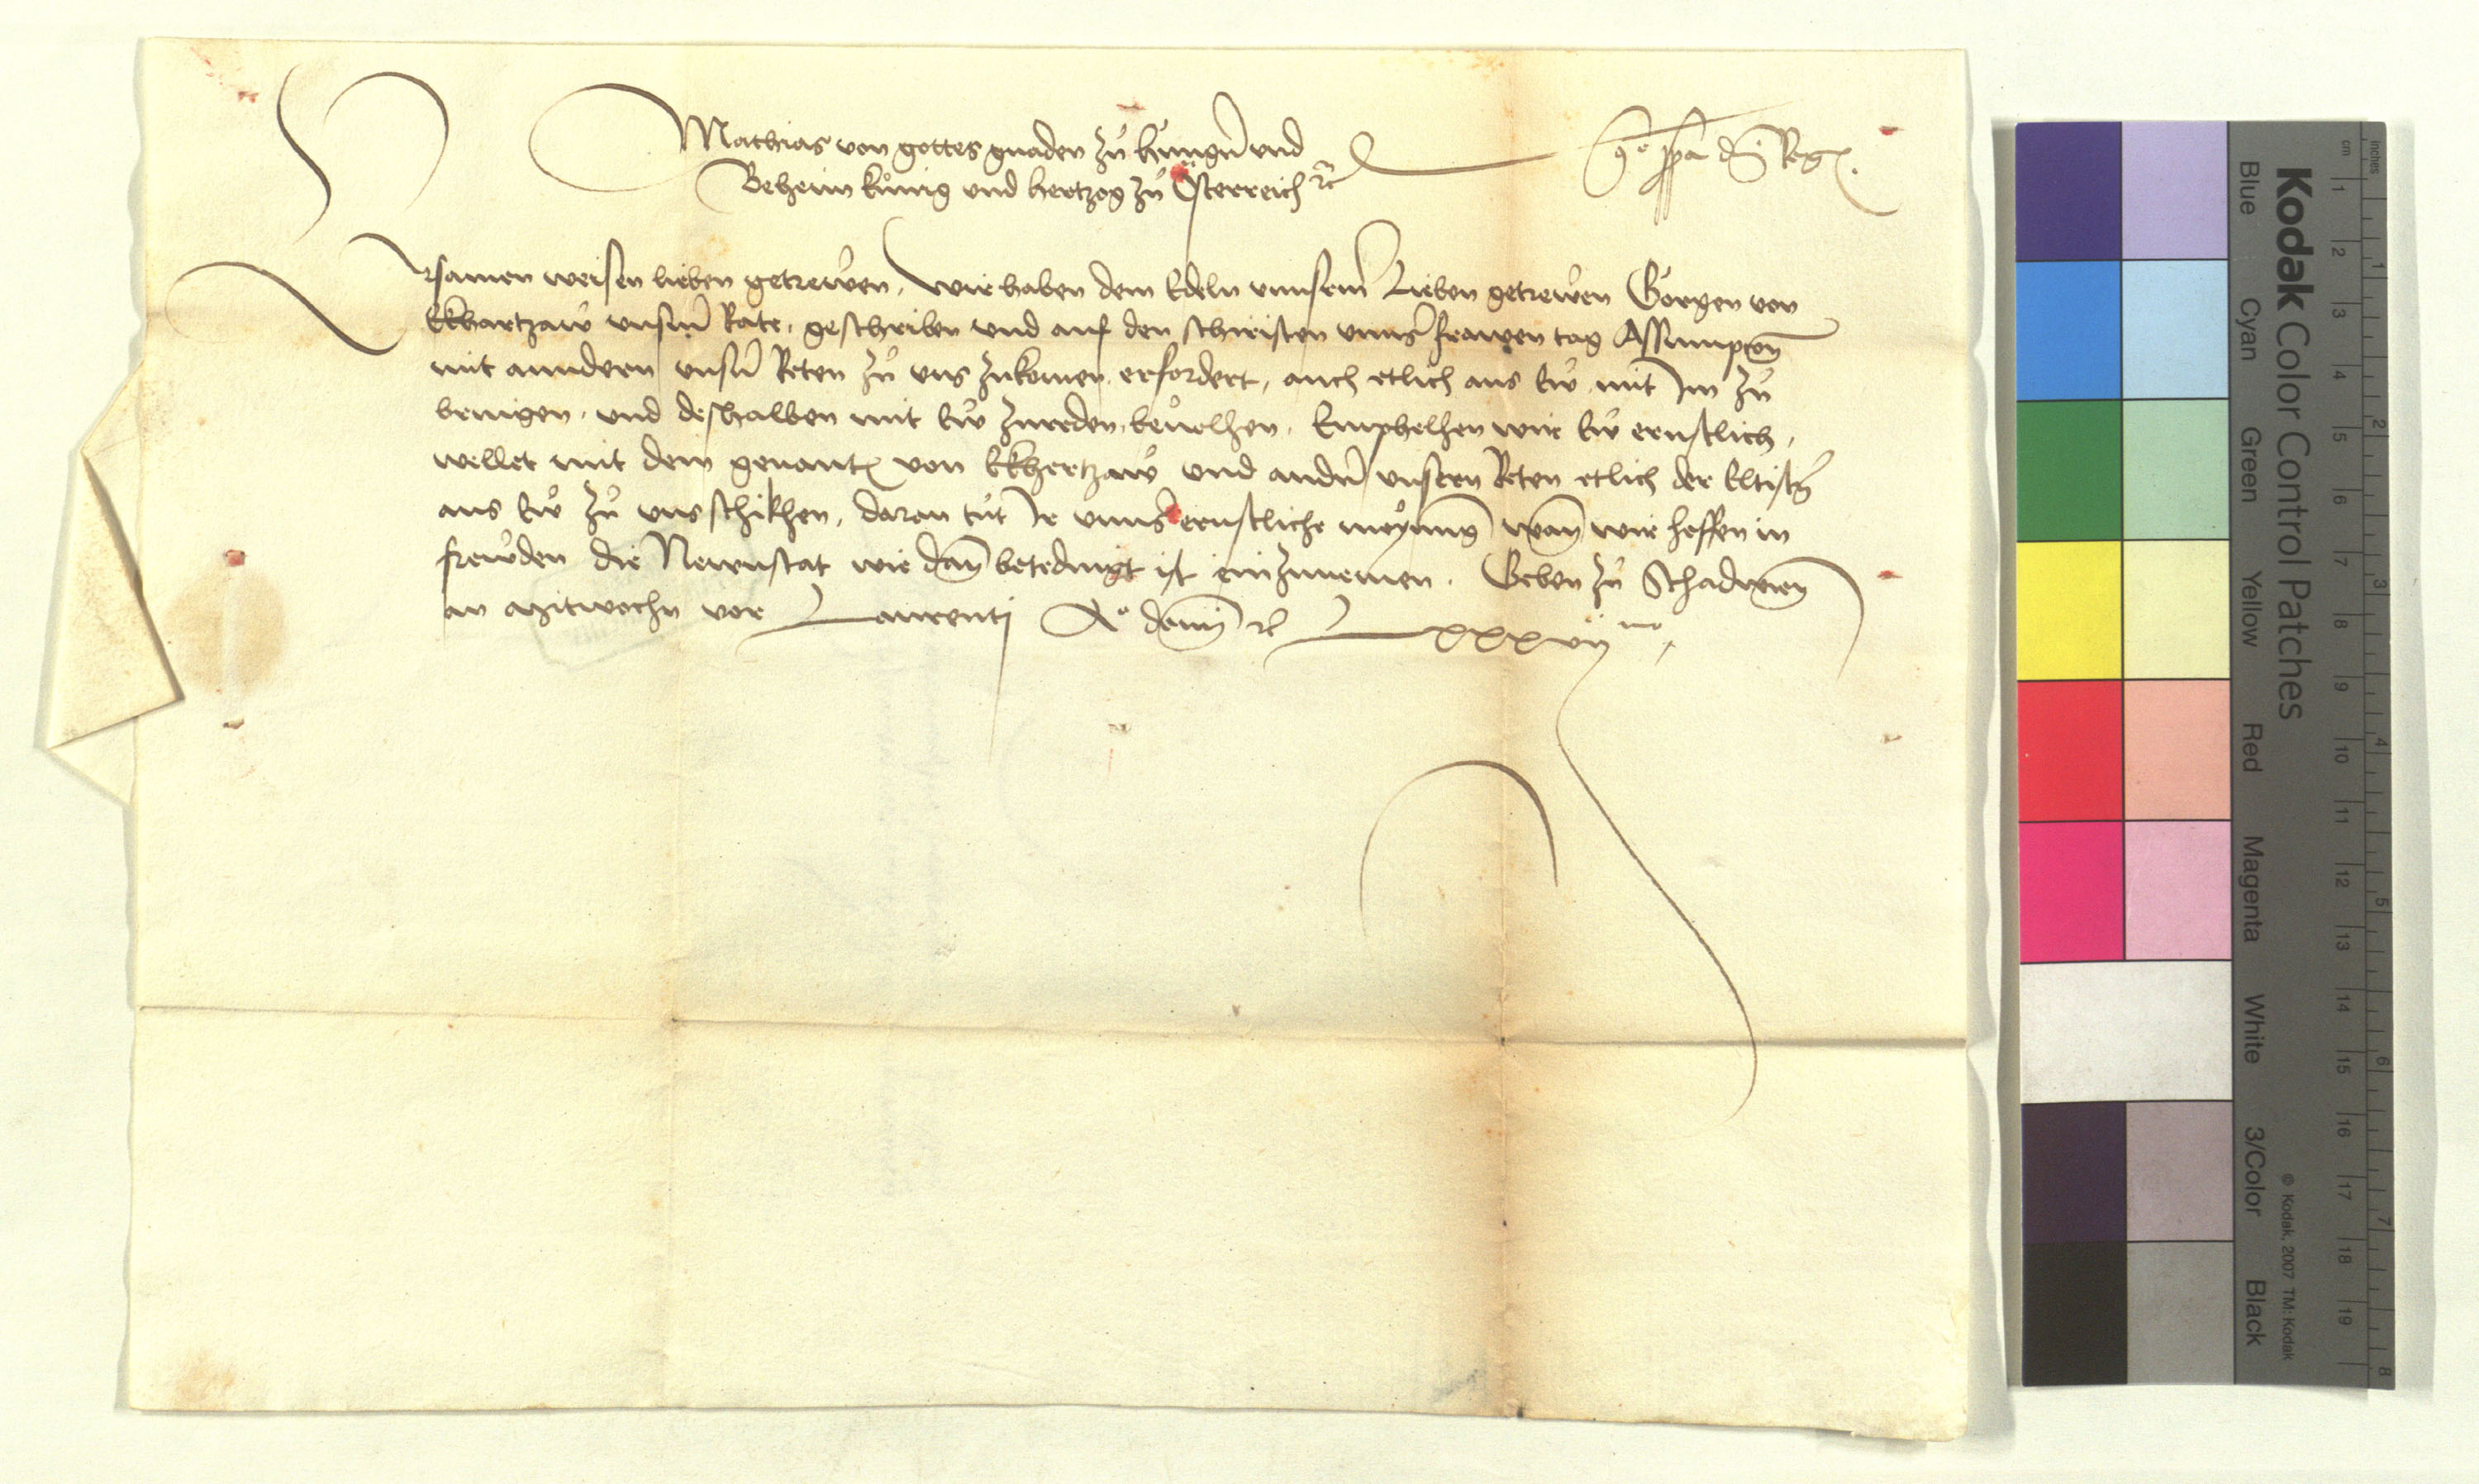 Mathias von gottes gnaden zů hungern und
Beheim kůnig und hertzog zů Österreich rc
Co ppa dni Regis.
Ersamen weisen lieben getrewen, Wir haben dem Edeln unnserm Lieben getrewen Görgen von
Ekhartzaw unserm Rate, geschriben und auf den schiristen unnser frawen tag Assumpcion
mit anndern unsern Reten zů uns zukomen erfordert, auch etlich aus Ew mit Im zů
bringen, und deshalben mit Ew zureden, bevolhen, Emphelhen wir Ew ernstlich,
wellet mit dem genanten von Ekhertzaw und andern unsern Reten etlich der Eltisten
aus Ew zů uns schikhen, daran tůt Ir unnser ernstliche meynung wann wir hoffen in
frewden die Newnstat wie dann betedingt ist einzunemen. Geben zů Schadwienn
an Mitwochn vor Laurentj Ao domini rc LXXXVIImo
Kodak Color Control Patches
Blue Cyan Green Yellow Red Magenta White 3/Color Black
© Kodak, 2007 TM: Kodak
inches 1 2 3 4 5 6 7 8
cm 1 2 3 4 5 6 7 8 9 10 11 12 13 14 15 16 17 18 19